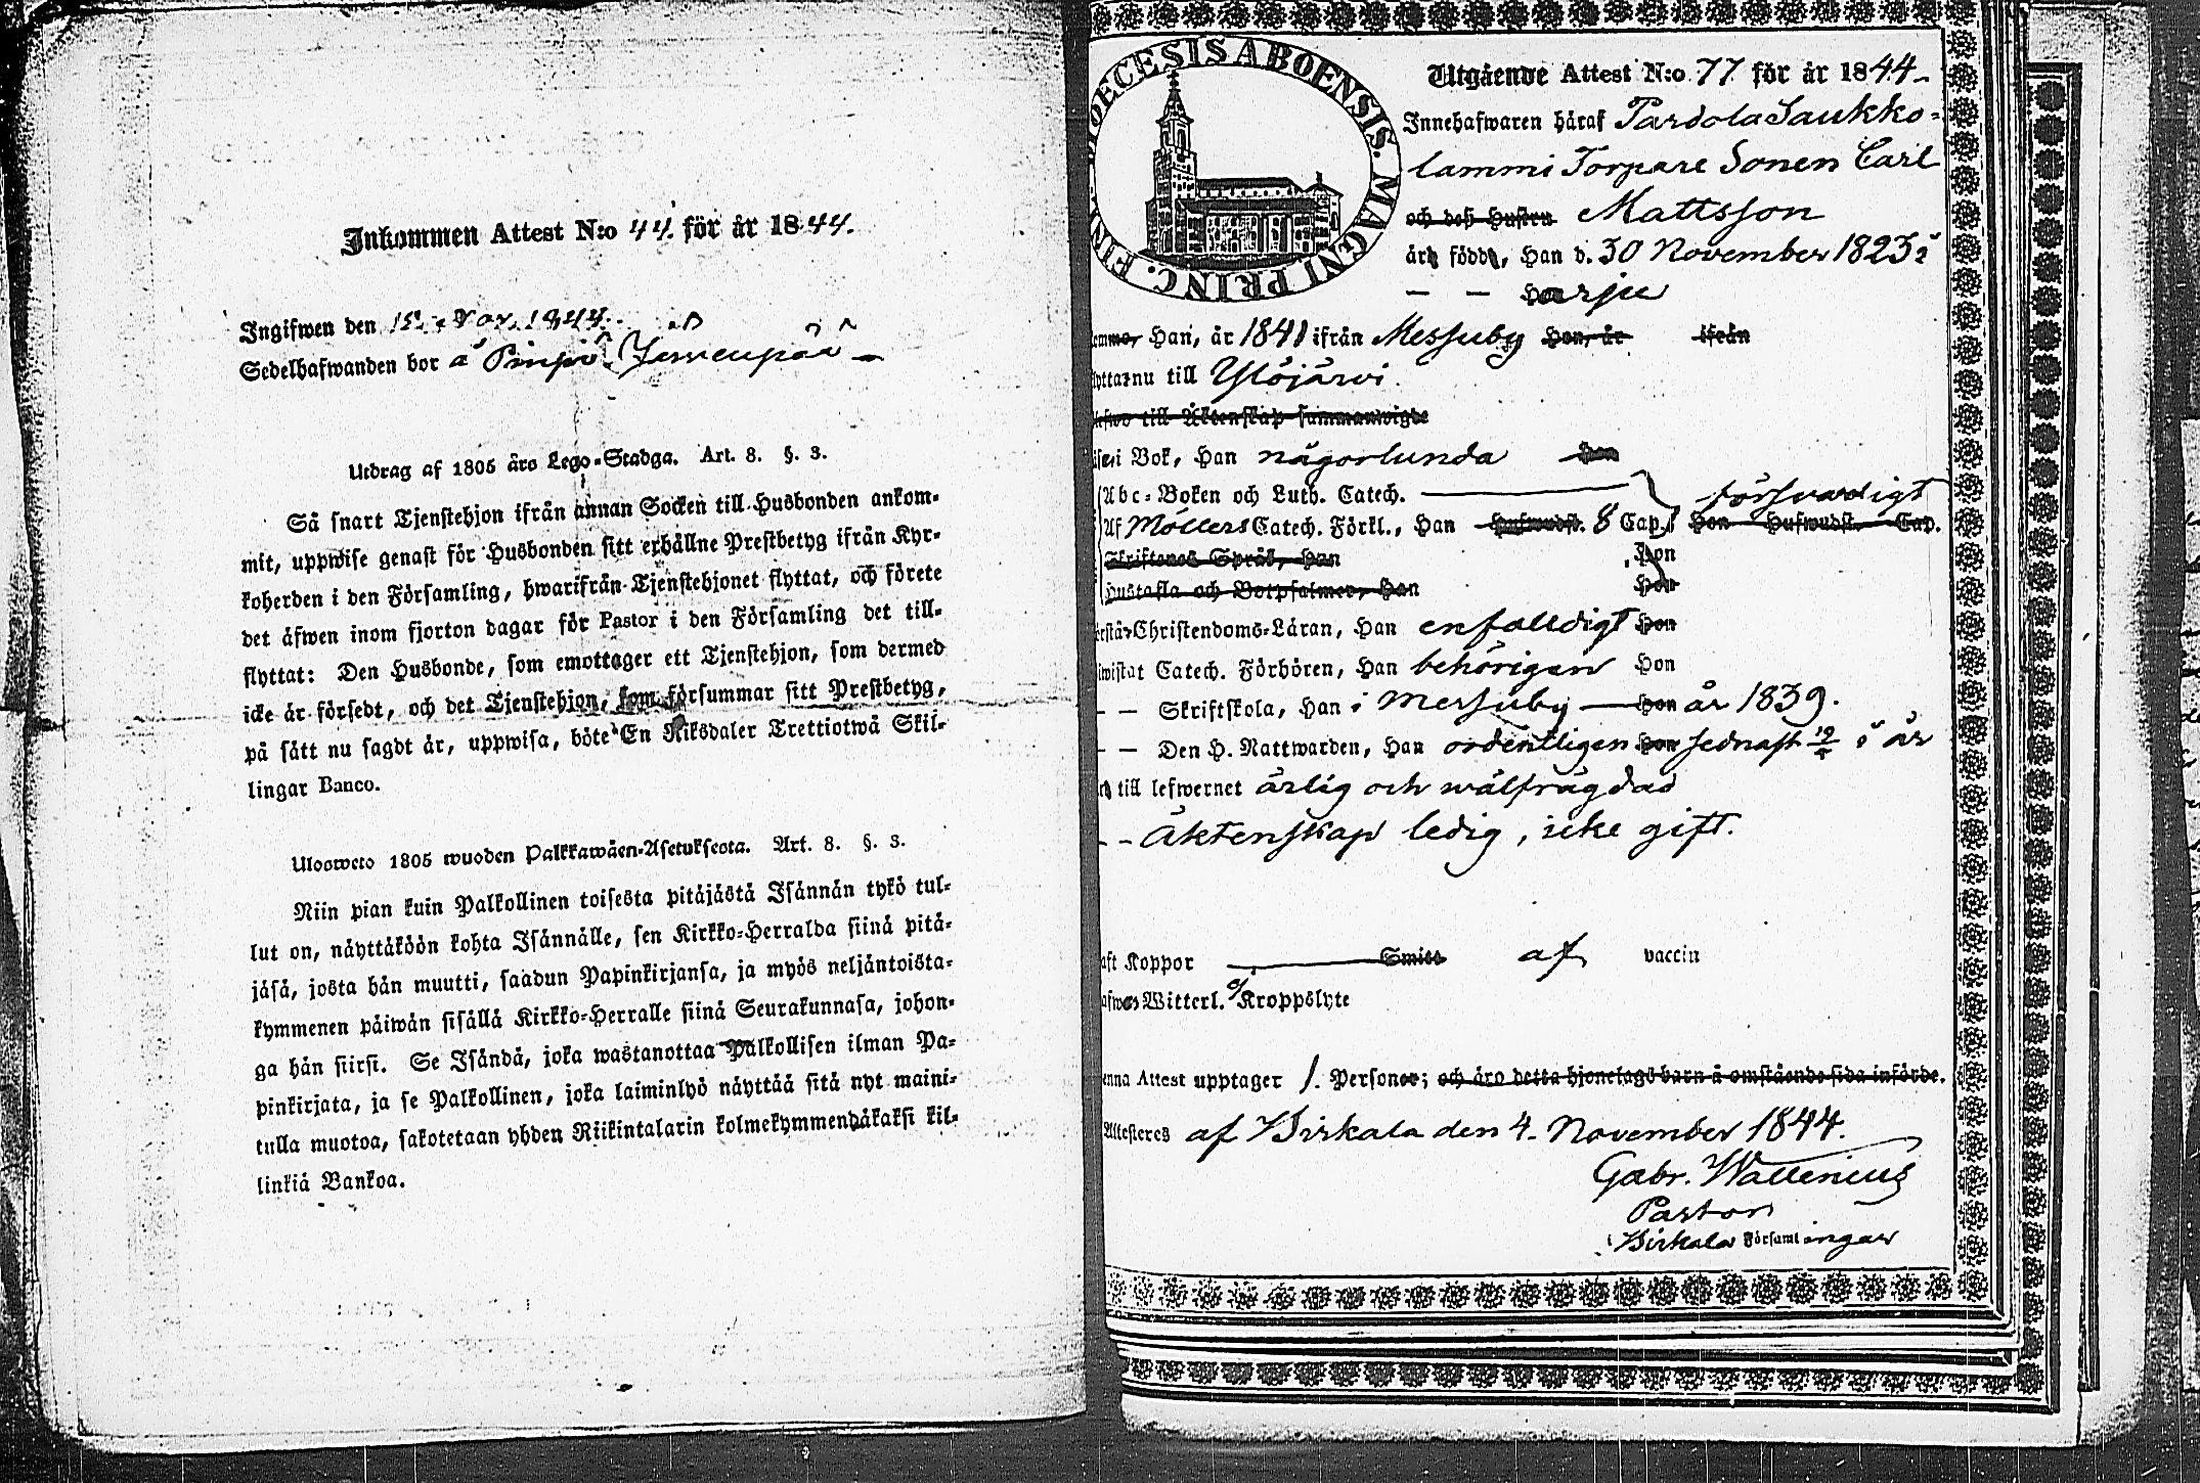 Inkommen Attest N:o 44. för år 1844.
Ingifwen den 15. Nov. 1844.
Sedelhafwanden bor å
Utdrag af 1805 års Lego-Stadga. Art. 8. §. 3.
Så snart Tjenstehjon ifrån annan Socken till Husbonden ankom-
mit, uppwise genast för Husbonden sitt erhållne Prestbetyg ifrån Kyr-
koherden i den Församling, hwarifrån Tjenstehjonet flyttat, och förete
det äfwen inom fjorton dagar för Pastor i den Församling det till-
flyttat: Den Husbonde, som emottager ett Tjenstehjon, som dermed
icke är försedt, och det Tjenstehjon, som försummar sitt Prestbetyg,
på sätt nu sagdt är, uppwisa, böte En Riksdaler Trettiotwå Skil-
lingar Banco.
Uloswcto 1805 wuoden Palkkawäen-Asetuksesta. Art. 8. §. 3.
Niin pian kuin Palkollinen toisesta pitäjästä Isännän tykö tul-
lut on, näyttäköön kohta Isännälle, sen Kirkko-Herralda siinä pitä-
jäsä, josta hän muutti, saadun Papinkirjansa, ja myös neljäntoista-
kymmenen päiwän sisällä Kirkko-Herralle siinä Seurakunnasa, johon-
ga hän siirsi. Se Isändä, joka wastanottaa Palkollisen ilman Pa-
pinkirjata, ja se Palkollinen, joka laiminlyö näyttää sitä nyt maini-
tulla muotoa, sakotetaan yhden Riikintalarin kolmekymmendäkaksi kil-
linkiä Bankoa.
DIOECESIS ABOENSIS. MAGNI PRINC. FIN
Utgående Attest N:o 77 för år 1844-
Innehafwaren häraf Pardola Saukko-
lammi Torpare Sonen Carl
och deß Hustru Mattsson
är född, Han d. 30 November 1823 i
— — Harju
Han, år 1841 ifrån Messuby Hon, år ifrån
nu till Ylöjärvi.
till Äktenskap sammanwigde
i Bok, Han någorlunda Hon
Abc-Boken och Luth. Catech. försvarligt
Af Möllers Catech. Förkl., Han Hufwudst. 8 Cap. Hon Hufwudst. Cap.
Skriftenes Språk, Han Hon
Hustafla och Botpsalmer, Han Hon
Christendoms-Läran, Han enfaldigt Hon
Catech. Förhören, Han behörigen Hon
— — Skriftskola, Han i Messuby Hon år 1839.
— — Den H. Nattwarden, Han ordentligen Hon sednast i år
till lefwernet ärlig och wälfrägdad
- - Äktenskap ledig, icke gift.
Koppor Smitt af vaccin
Witterl. Kroppslyte
Attest upptager 1. Personer; och äro detta hjonelags barn å omstående sida införde.
Attesteres af Birkala den 4. November 1844.
Gabr. Wallenius
Pastor
i Birkala Församlingar